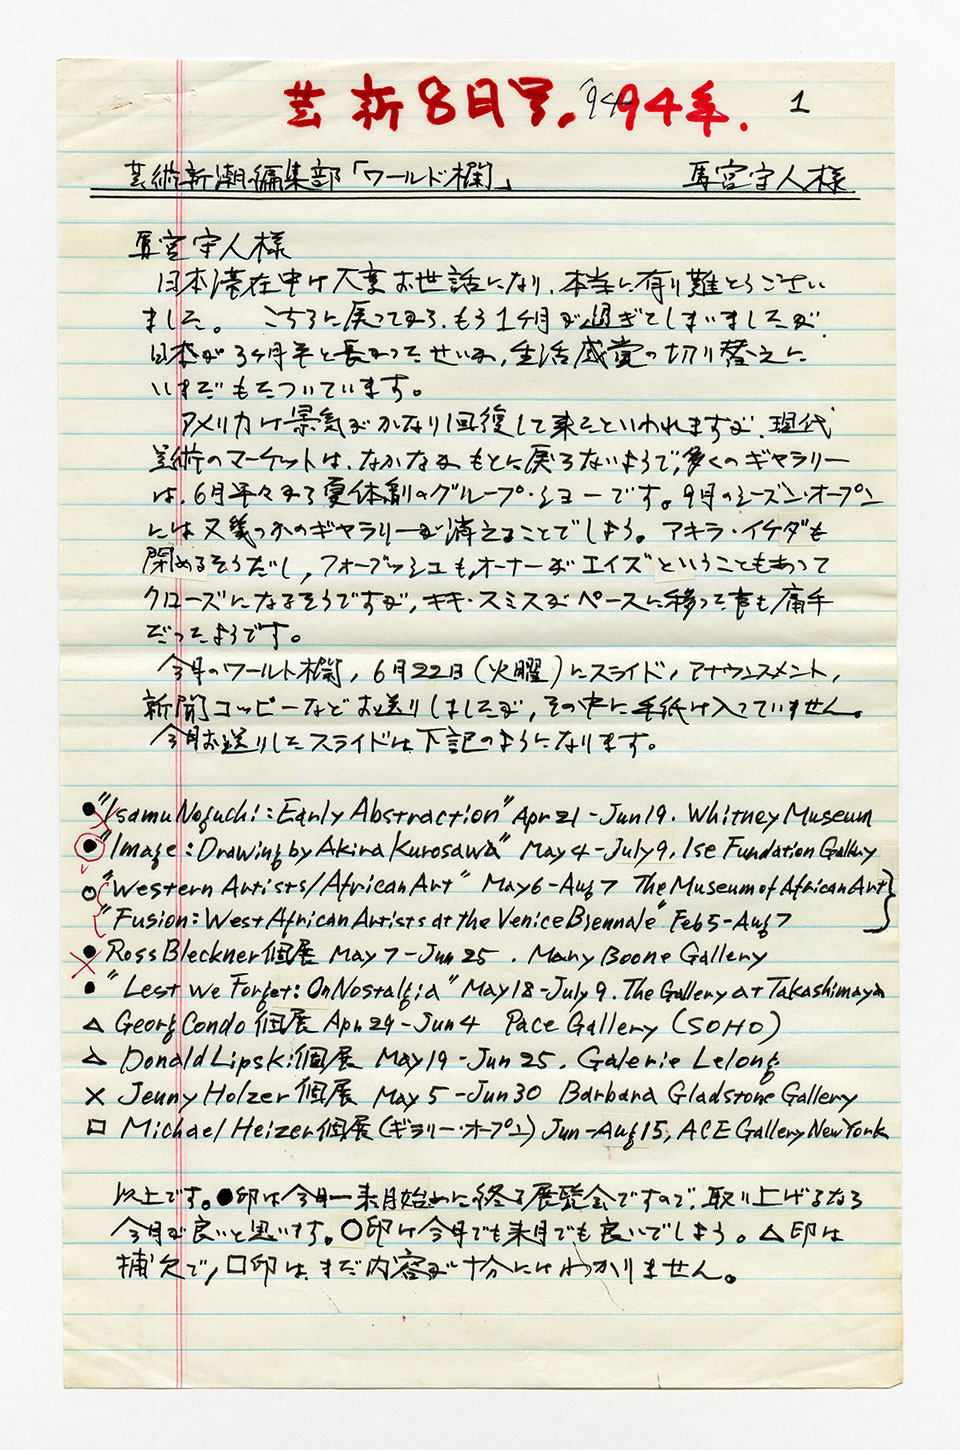 芸新8月号. '94 94年. 1
芸術新潮編集部「ワールド欄」 馬宮守人様
馬宮守人様
日本滞在中は大変お世話になり、本当に有り難とうござい
ました。 こちらに戻ってから、もう1ヶ月が過ぎてしまいましたが、
日本が3ヶ月半と長かったせいか、生活感覚の切り替えに
いまだもたついています。
アメリカは景気がかなり回復して来たといわれますが、現代
美術のマーケットは、なかなかもとに戻らないようで、多くのギャラリー
は、6月半々から夏体制のグループ・ショーです。9月のシーズン・オープン
には又幾つかのギャラリーが消えることでしょう。アキラ・イケダも
閉めるそうだし、フォーブッシュも、オーナーがエイズということもあって
クローズになるそうですが、キキ・スミスがペースに移った事も痛手
だったようです。
今月のワールド欄、6月22日(火曜)にスライド、アナウンスメント、
新聞コッピーなどお送りしましたが、その中に手紙は入っていません。
今月お送りしたスライドは下記のようになります。
●"Isamu Noguchi: Early Abstraction" Apr 21-Jun 19. Whitney Museum
●"Image: Drawing by Akira Kurosawa" May 4-July 9, Ise Fundation Gallery
○"Western Artists/African Art" May 6-Aug 7 The Museum of African Art
"Fusion: West African Artists at the Venice Biennale" Feb 5-Aug 7
● Ross Bleckner個展 May 7-Jun 25. Mary Boone Gallery
● "Lest We Forget: On Nostalgia" May 18-July 9. The Gallery at Takashimaya
△ Georg Condo 個展 Apr 29-Jun 4 Pace Gallery (SOHO)
△ Donald Lipski個展 May 19-Jun 25. Galerie Lelong
× Jenny Holzer 個展 May 5-Jun 30 Barbara Gladstone Gallery
□ Michael Heizer個展(ギャラリー・オープン) Jun-Aug 15, ACE Gallery New York
以上です。●印は今月―来月始めに終る展覧会ですので、取り上げるなら
今月が良いと思います。○印は今月でも来月でも良いでしょう。△印は
補欠で、□印は、まだ内容が十分にはわかりません。